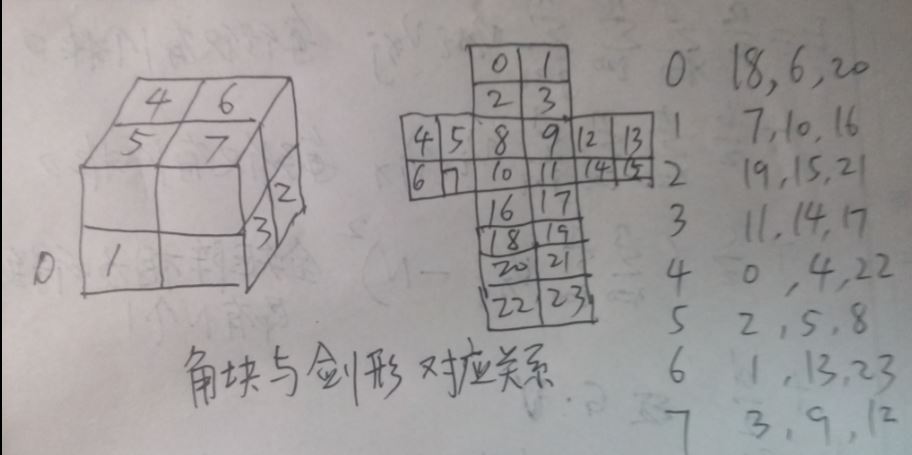 4 6
5 7
2
3
0 1
0 1
2 3
4 5 8 9 12 13
6 7 10 11 14 15
16 17
18 19
20 21
22 23
角块与剑形对应关系
0 18,6,20
1 7,10,16
2 19,15,21
3 11,14,17
4 0,4,22
5 2,5,8
6 1,13,23
7 3,9,12